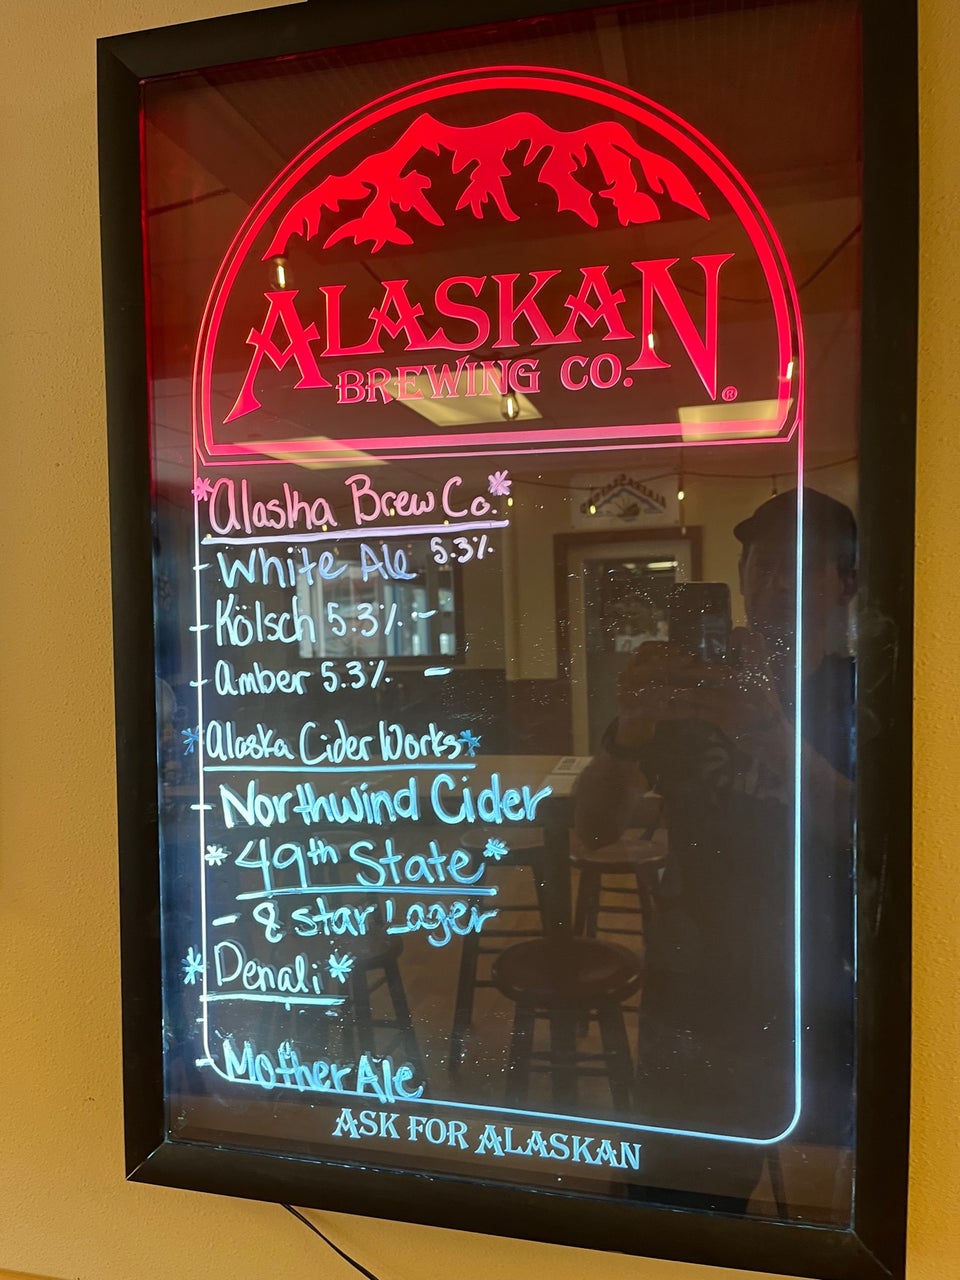 ALASKAN
BREWING CO.®
*Alaska Brew Co.*
- White Ale 5.3%
- Kölsch 5.3% -
- Amber 5.3% -
*Alaska Cider Works*
- Northwind Cider
*49th State*
- 8 star Lager
*Denali*
-
- Mother Ale
ASK FOR ALASKAN